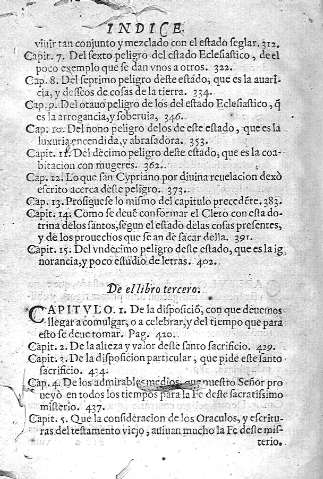 INDICE.
viuir tan conjunto y mezclado con el estado seglar. 312.
Capit. 7. Del sexto peligro del estado Eclesiastico, de el
poco exemplo que se dan vnos a otros. 322.
Cap. 8. Del septimo peligro deste estado, que es la auari-
cia, y desseos de cosas de la tierra. 334.
Cap. 9. Del otauo peligro de los del estado Eclesiastico, q̃
es la arrogancia, y soberuia, 346.
Cap. 10. Del nono peligro delos de este estado, que es la
luxuria encendida, y abrasadora. 353.
Capit. 11. Del decimo peligro deste estado, que es la coa-
bitacion con mugeres. 362.
Cap. 12. Lo que san Cypriano por diuina reuelacion dexò
escrito acerca deste peligro. 373.
Cap. 13. Prosigue se lo mismo del capitulo precedẽte. 383.
Capit. 14. Como se deuẽ conformar el Clero con esta do-
trina delos santos, segun el estado delas cosas presentes,
y de los prouechos que se an de sacar della. 391.
Capit. 15. Del vndecimo peligro deste estado, que es la ig
norancia, y poco estudio de letras. 402.
De el libro tercero:
CAPITVLO. 1. De la disposiciõ, con que deuemos
llegar a comulgar, o a celebrar, y del tiempo que para
esto se deue tomar. Pag. 420.
Capit. 2. De la alteza y valor deste santo sacrificio. 429.
Capit. 3. De la disposicion particular, que pide este santo
sacrificio. 434.
Cap. 4. De los admirables medios, que nuestro Señor pro
ueyò en todos los tiempos para la Fe deste sacratissimo
misterio. 437.
Capit. 5. Que la consideracion de los Oraculos, y escritu-
ras del testamento viejo, auiuan mucho la Fe deste mis-
terio.